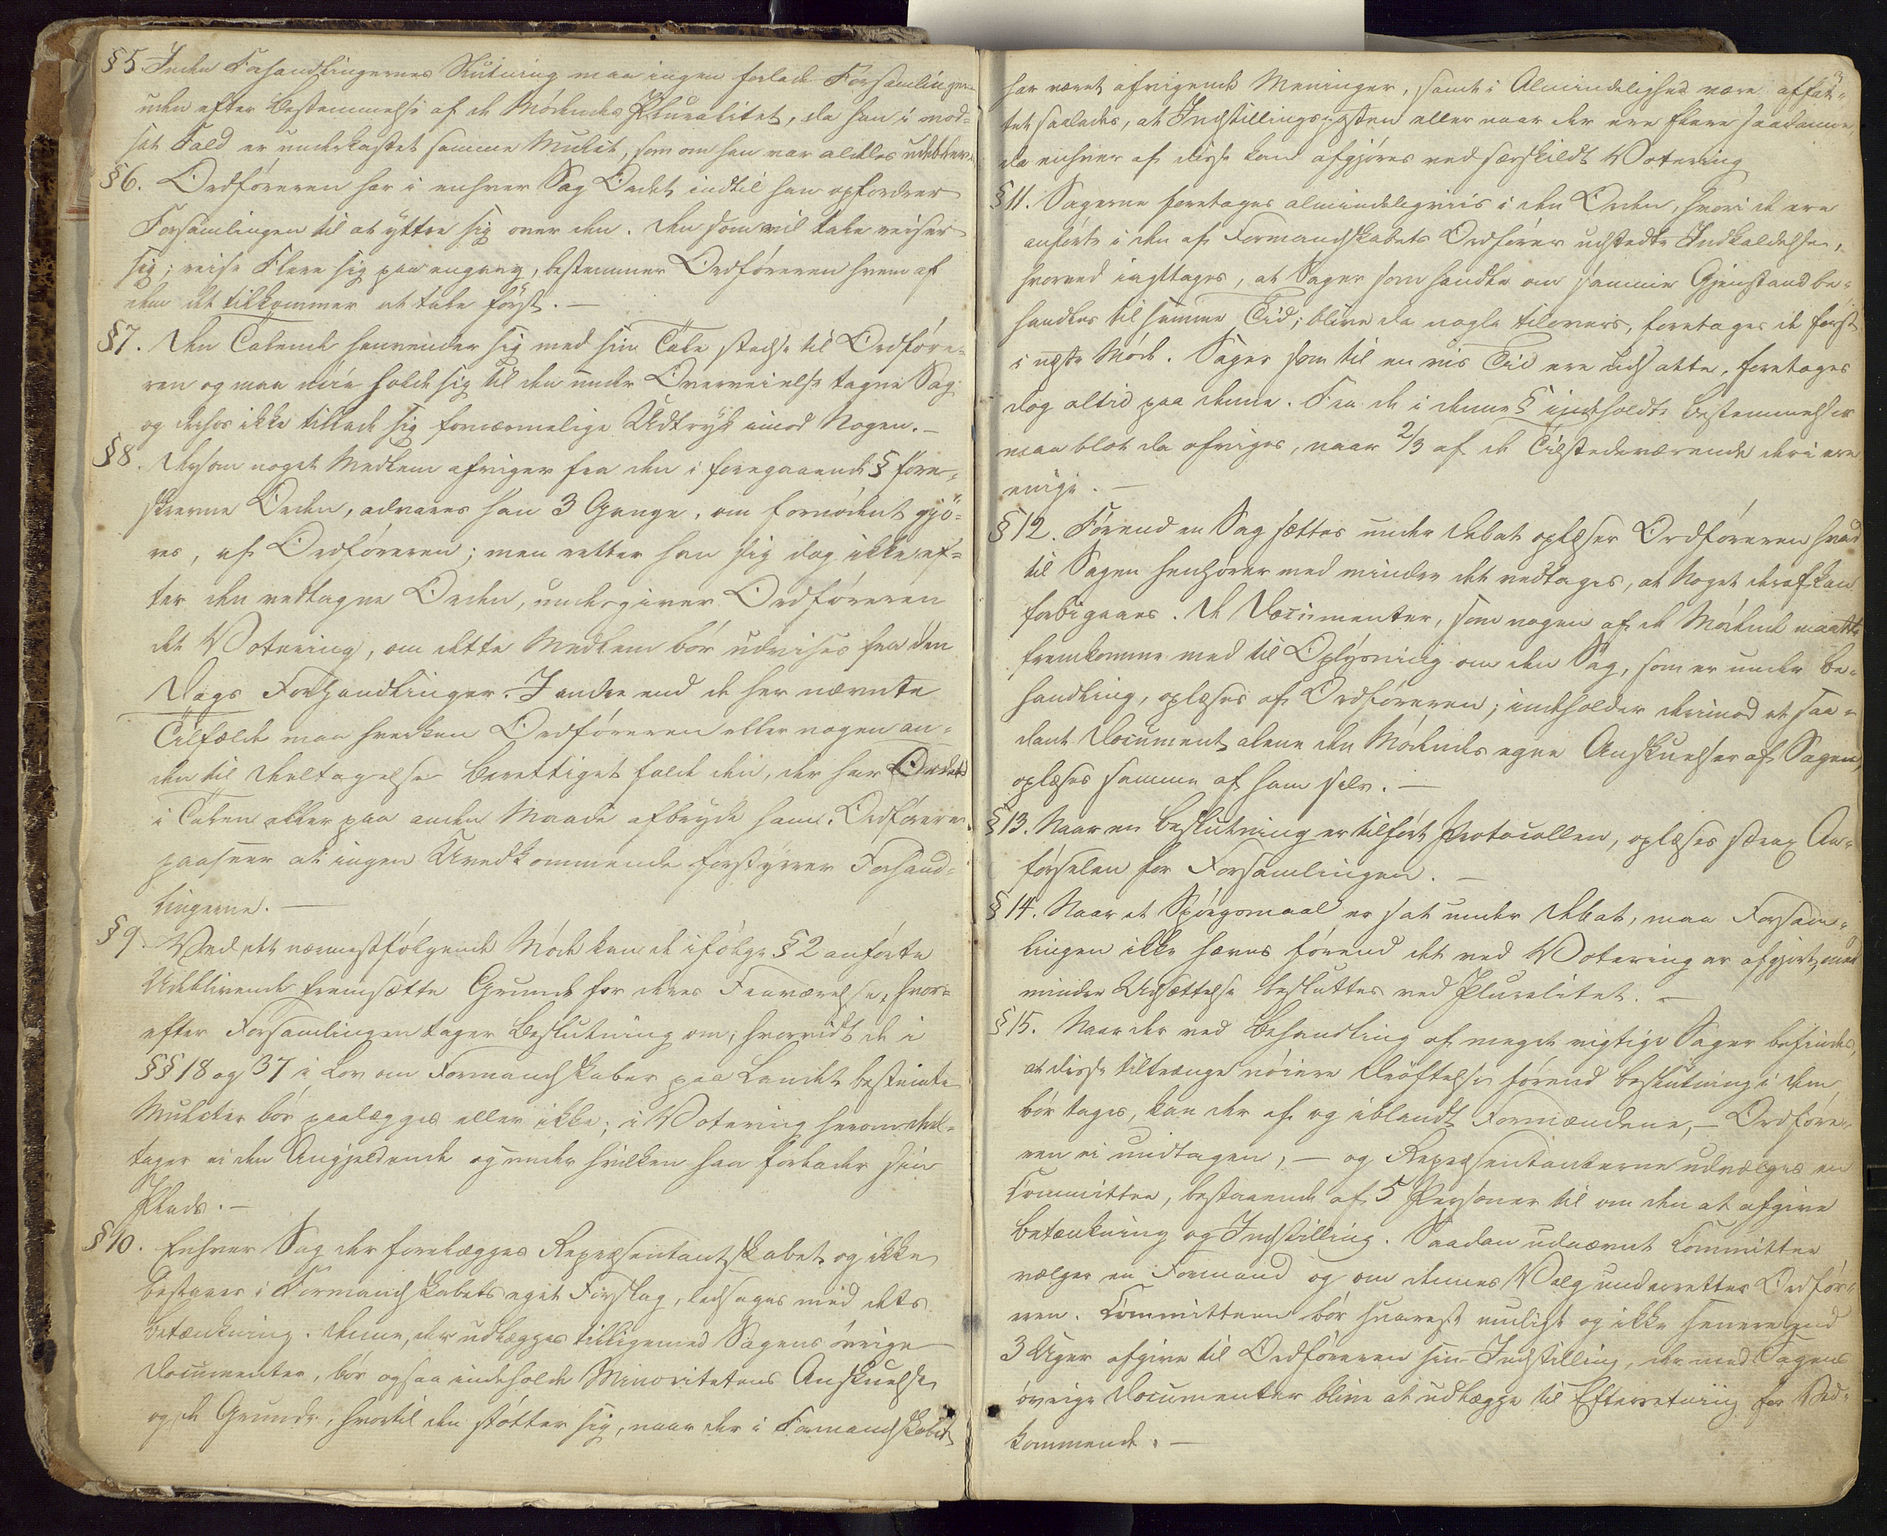 §5. Inden Forhandlingernes Slutning maa ingen forlade Forsamlingen
uden efter Bestemmelse af de Mödendes Pluralitet, da han i mod-
sat Fald er underkastet samme Mulct, som om han var aldeles udebleven.
§6. Ordföreren har i enhver Sag Ordet indtil han opfordrer
Forsamlingen til at yttre sig over den. Den som vil tale reiser
sig; reise Flere sig paa engang, bestemmer Ordföreren hvem af
dem det tilkommer at tale först. —
§7. Den Talende henvender sig med sin Tale stedse til Ordföre-
ren og maa nöie holde sig til den under Overveielse tagne Sag
og derhos ikke tillade sig fornærmelige Udtryk imod Nogen. —
§8. Dersom noget Medlem afviger fra den i foregaaende § fore-
skrevne Orden, advares han 3 Gange, om fornödent gjö-
res, af Ordföreren; men retter han sig dog ikke ef-
ter den vedtagne Orden, undergiver Ordföreren
det Votering, om dette Medlem bör udvises fra den
Dags Forhandlinger. I andre end de her nævnte
Tilfælde maa hverken Ordföreren eller nogen an-
den til Deltagelse berettiget falde den, der har Ordet
i Talen eller paa anden Maade afbryde ham. Ordföreren
paaseer at ingen Uvedkommende forstyrrer Forhand-
lingerne. —
§9. Ved det nærmestfölgende Möde kan de ifölge §2 anförte
Udeblivende fremsætte Grunde for deres Fraværelse, hvor-
efter Forsamlingen tager Beslutning om, hvorvidt de i
§§ 18 og 37 i Lov om Formandskaber paa Landet bestemte
Mulcter bör paalægges eller ikke; i Votering herom del-
tager ei den Angjeldende og under hvilken han forlader sin
Plads. —
§10. Enhver Sag der forelægges Repræsentantskabet og ikke
bestaaer i Formandskabets eget Forslag, ledsages med dets
Betænkning. Denne, der udlægges tilligemed Sagens övrige
Documenter, bör ogsaa indeholde Minoritetens Anskuelse
og de Grunde, hvortil den stötter sig, naar der i Formandskabet
3
har været afvigende Meninger, samt i Almindelighed være affat-
tet saaledes, at Indstillingsposten eller naar der ere flere saadanne,
da enhver af disse kan afgjöres ved særskildt Votering
§11. Sagerne foretages almindeligviis i den Orden, hvori de ere
anförte i den af Formandskabets Ordförer udstedte Indkaldelse,
hvorved iagttages, at Sager som handle om samme Gjenstand be-
handles til samme Tid; blive da nogle tilovers, foretages de först
i næste Möde. Sager som til en vis Tid ere udsatte, foretages
dog altid paa denne. Fra de i denne § indholdte Bestemmelser
maa blot da afviges, naar 2/3 af de Tilstedeværende deri ere
enige. —
§12. Förend en Sag sættes under Debat oplæser Ordföreren hvad
til Sagen henhörer med mindre det vedtages, at Noget deraf kan
forbigaaes. De Documenter, som nogen af de Mödende maatte
fremkomme med til Oplysning om den Sag, som er under Be-
handling, oplæses af Ordföreren; indeholder derimod et saa-
dant Document alene den Mödendes egne Anskuelser af Sagen,
oplæses samme af ham selv. —
§13. Naar en Beslutning er tilfört Protocollen, oplæses strax An-
förselen for Forsamlingen. —
§14. Naar et Spörgsmaal er sat under Debat, maa Forsam-
lingen ikke hæves förend det ved Votering er afgjort, med
mindre Udsættelse besluttes ved Pluralitet. —
§15. Naar der ved Behandling af meget vigtige Sager befindes,
at disse tiltrænge nöiere Dröftelse förend Beslutning i dem
bör tages, kan der af og iblandt Formændene, — Ordföre-
ren ei undtagen, — og Repræsentanterne udvælges en
Committee, bestaaende af 5 Personer til om den at afgive
Betænkning og Indstilling. Saadan udnævnt Committee
vælger en Formand og om dennes Valg underrettes Ordföre-
ren. Committeen bör snarest muligt og ikke senere end
3 Uger afgive til Ordföreren sin Indstilling, der med Sagens
övrige Documenter bliver at udlægge til Efterretning for Ved-
kommende. —